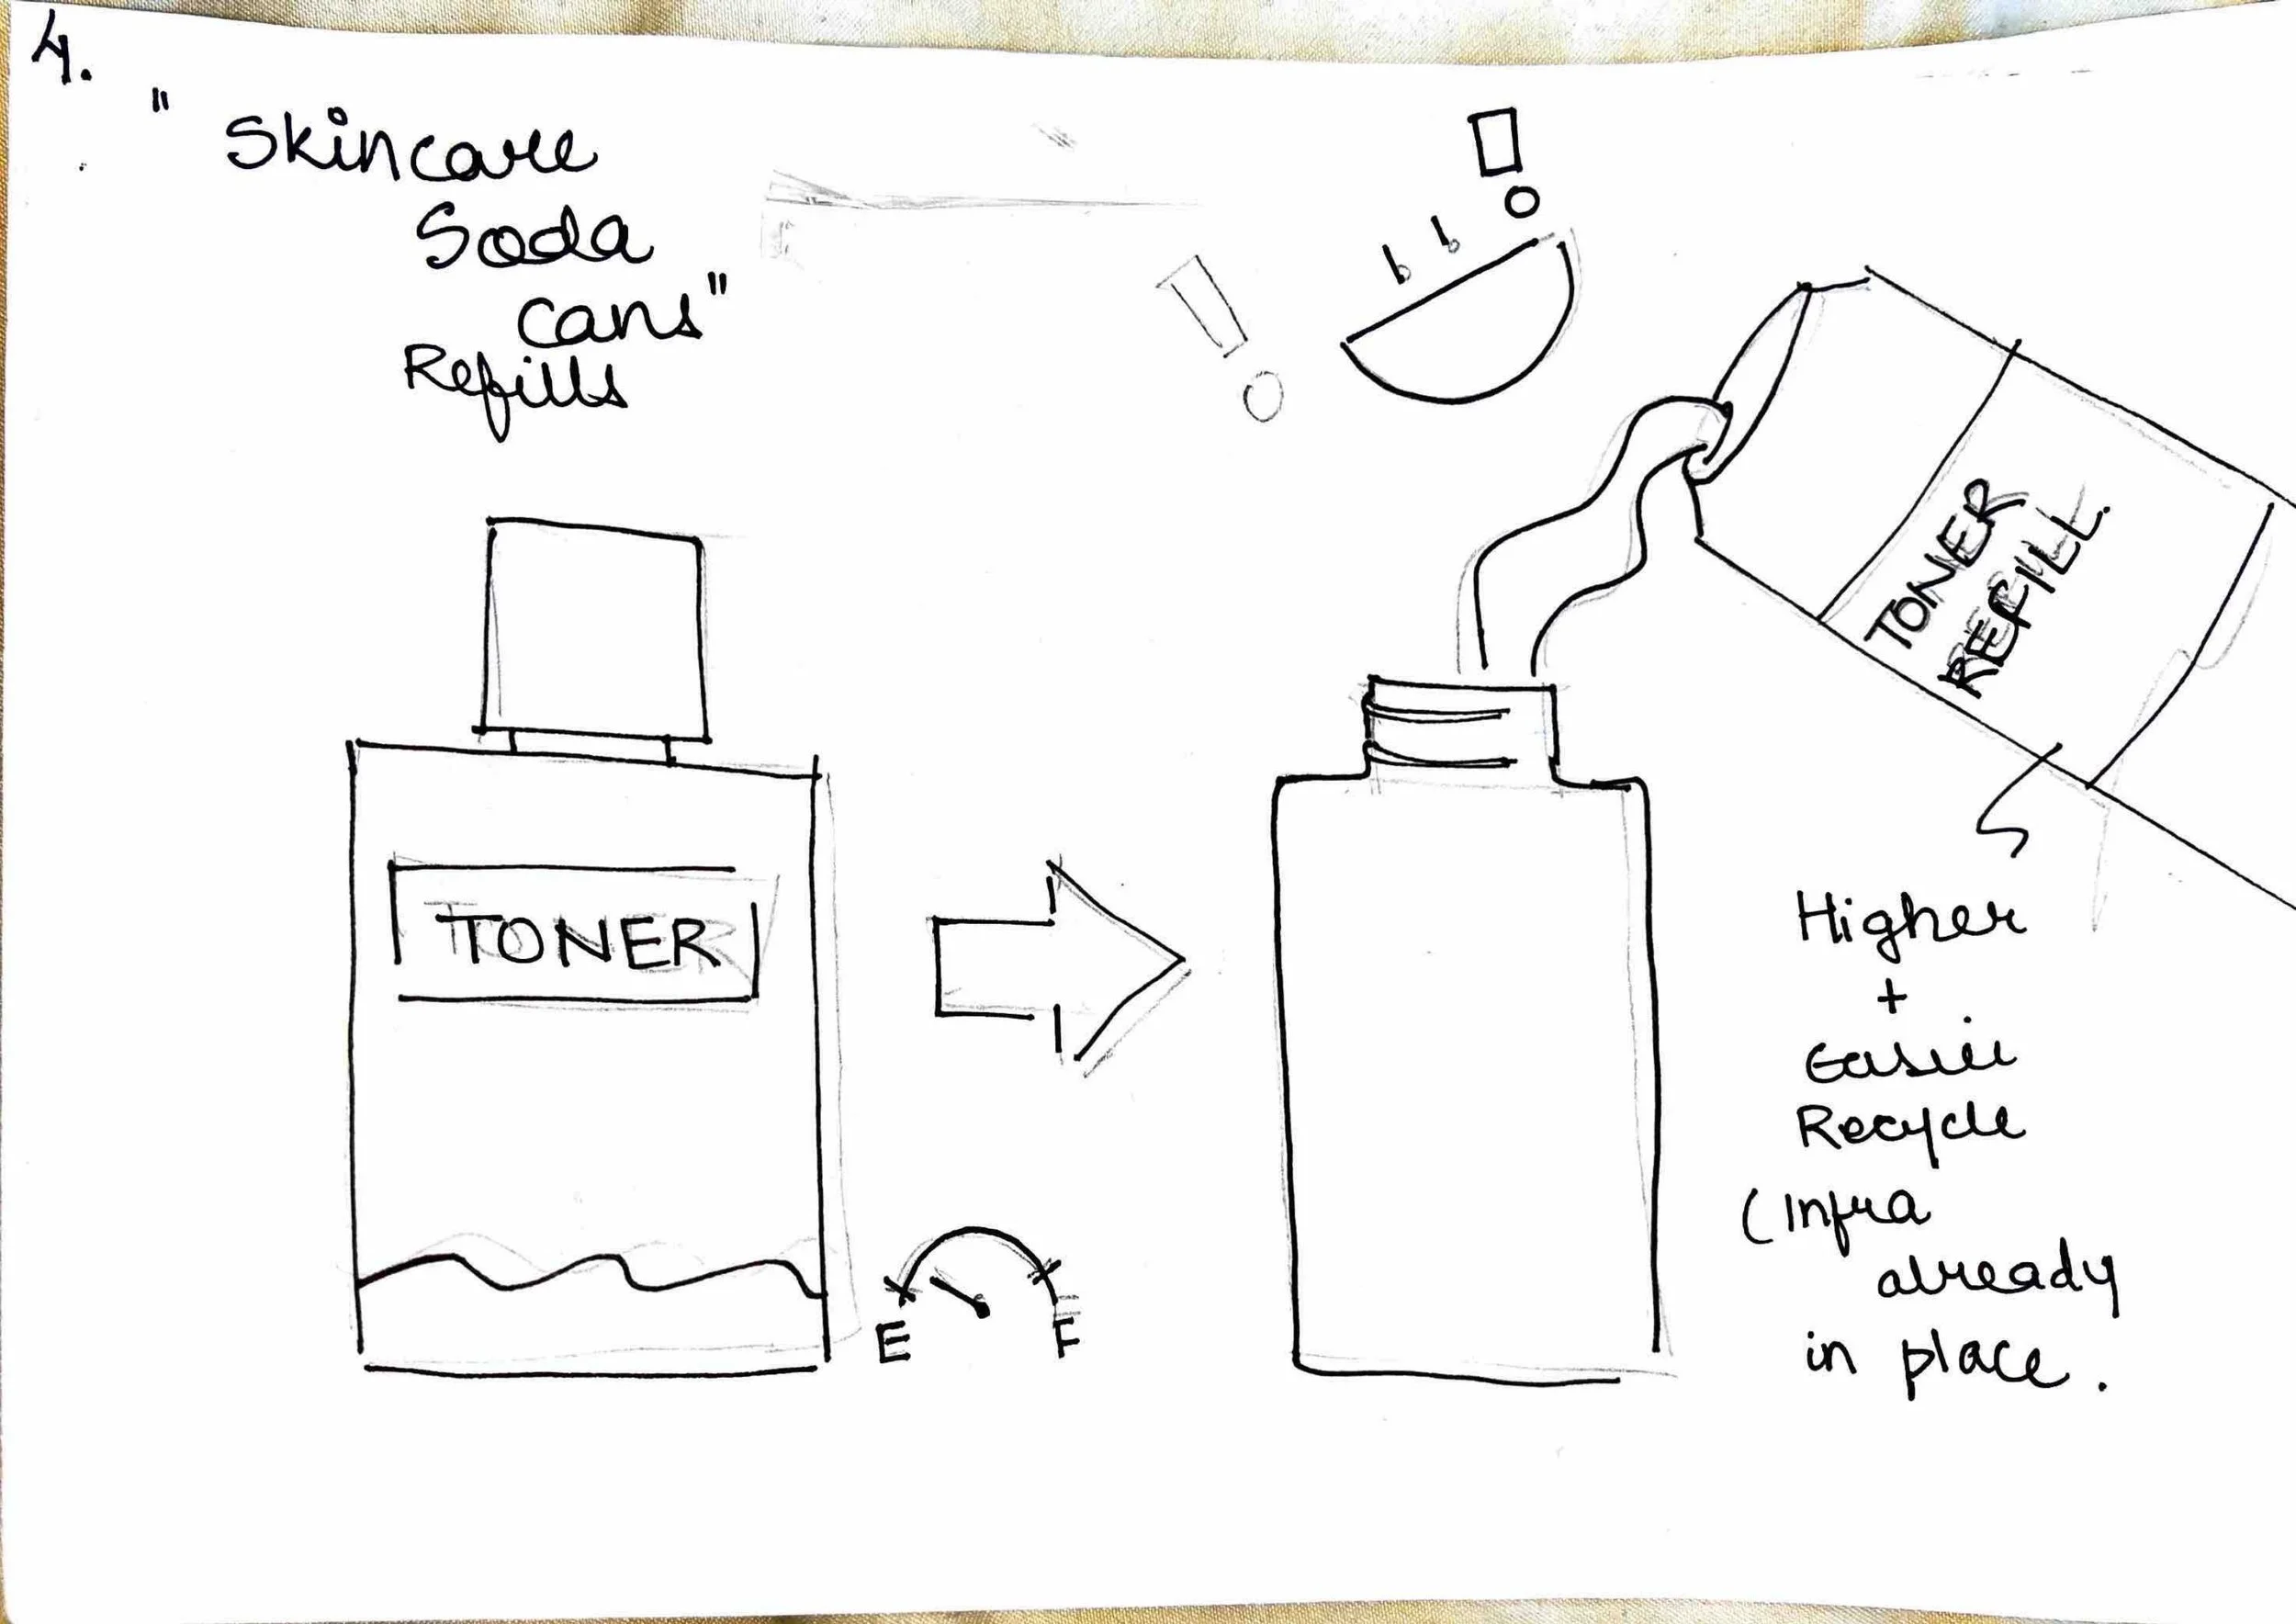 4.
"Skincare
Soda
Cans"
Refills
TONER
E
F
TONER
REFILL.
Higher
+
Easier
Recycle
(Infra
already
in place.